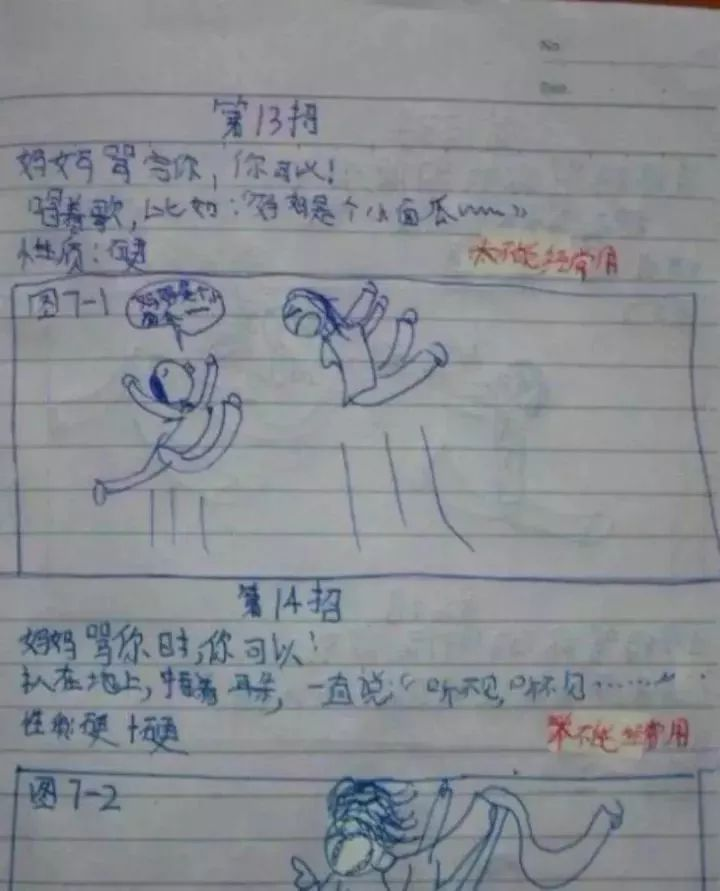 No
Date
第13招
妈妈骂你,你可以!
唱着歌,比如:"妈妈是个小面瓜
性质:硬
不能经常用
图7-1
妈妈是个小面瓜
第14招
妈妈骂你时,你可以!
趴在地上,捂着耳朵,一直说:"听不见,听不见……"
性质硬+硬
不能经常用
图7-2